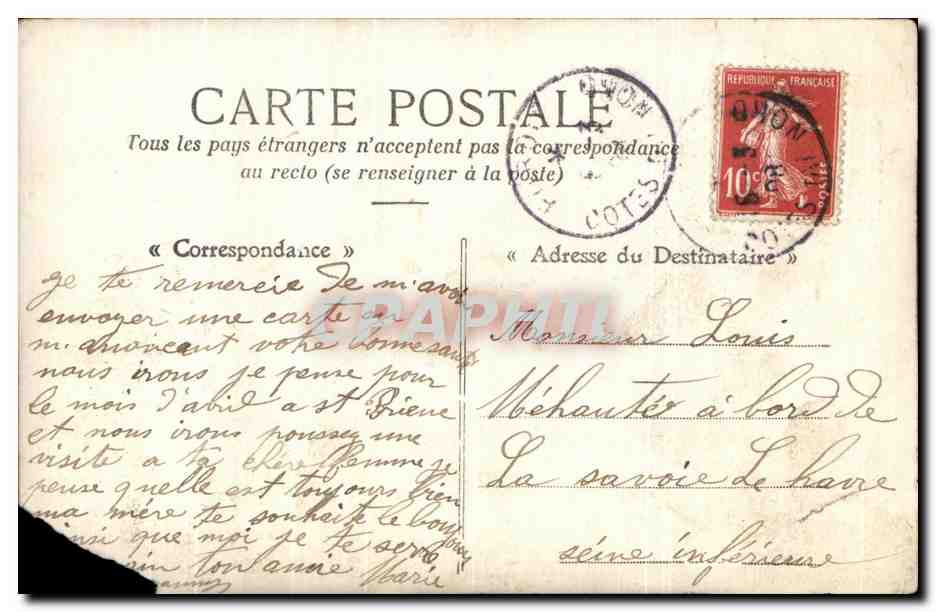 CARTE POSTALE
Tous les pays étrangers n'acceptent pas la correspondance
au recto (se renseigner à la poste)
REPUBLIQUE FRANÇAISE
10c
NORD
COTES DU NORD
« Correspondance »
je te remercie de m'avoir
envoyer une carte en
m'anoncant votre bonne santé
nous irons je pense pour
le mois d'avril a st Brieuc
et nous irons poussez une
visite a ta chère femme je
pense quelle est toujours bien
ma mère te souhaite le bonjour
ainsi que moi je te serre
main ton amie Marie
« Adresse du Destinataire »
Monsieur Louis
Méhauté à bord de
La savoie Le havre
séine inférieure
DELCAMPHIL